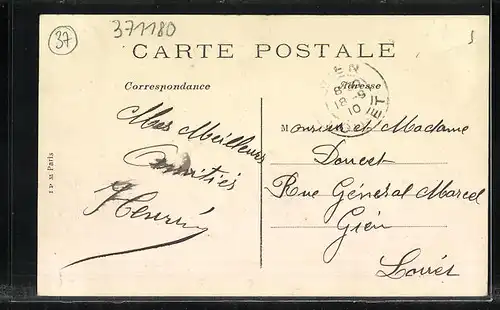 37
371180
CARTE POSTALE
Correspondance
Adresse
Mes Meilleurs
Amitiés
Henri
Monsieur et Madame
Doucet
Rue Général Marcel
Gien
Loiret
I P M Paris